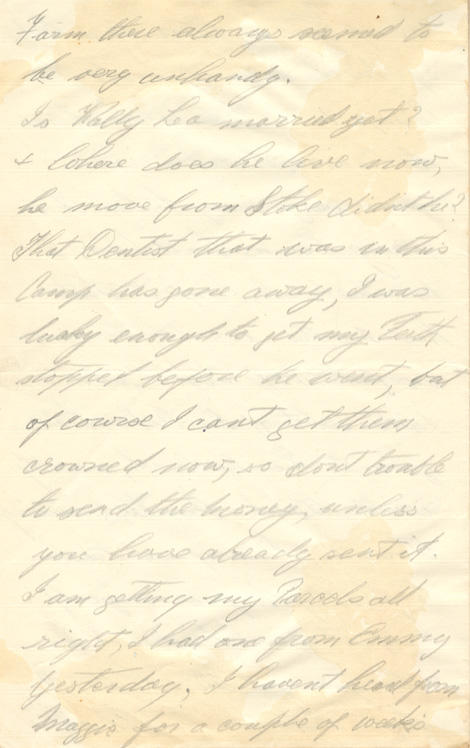 Farm there always seemed to
be very unhandy.
Is Wally Lea married yet?
+ where does he live now,
he move from Stoke didn't he?
That Dentist that was in this
Camp has gone away, I was
lucky enough to get my Teeth
stopped before he went, but
of course I can't get them
crowned now, so dont trouble
to send the money, unless
you have already sent it.
I am getting my Parcels all
right, I had one from Emmy
yesterday. I havent heard from
Maggie for a couple of weeks